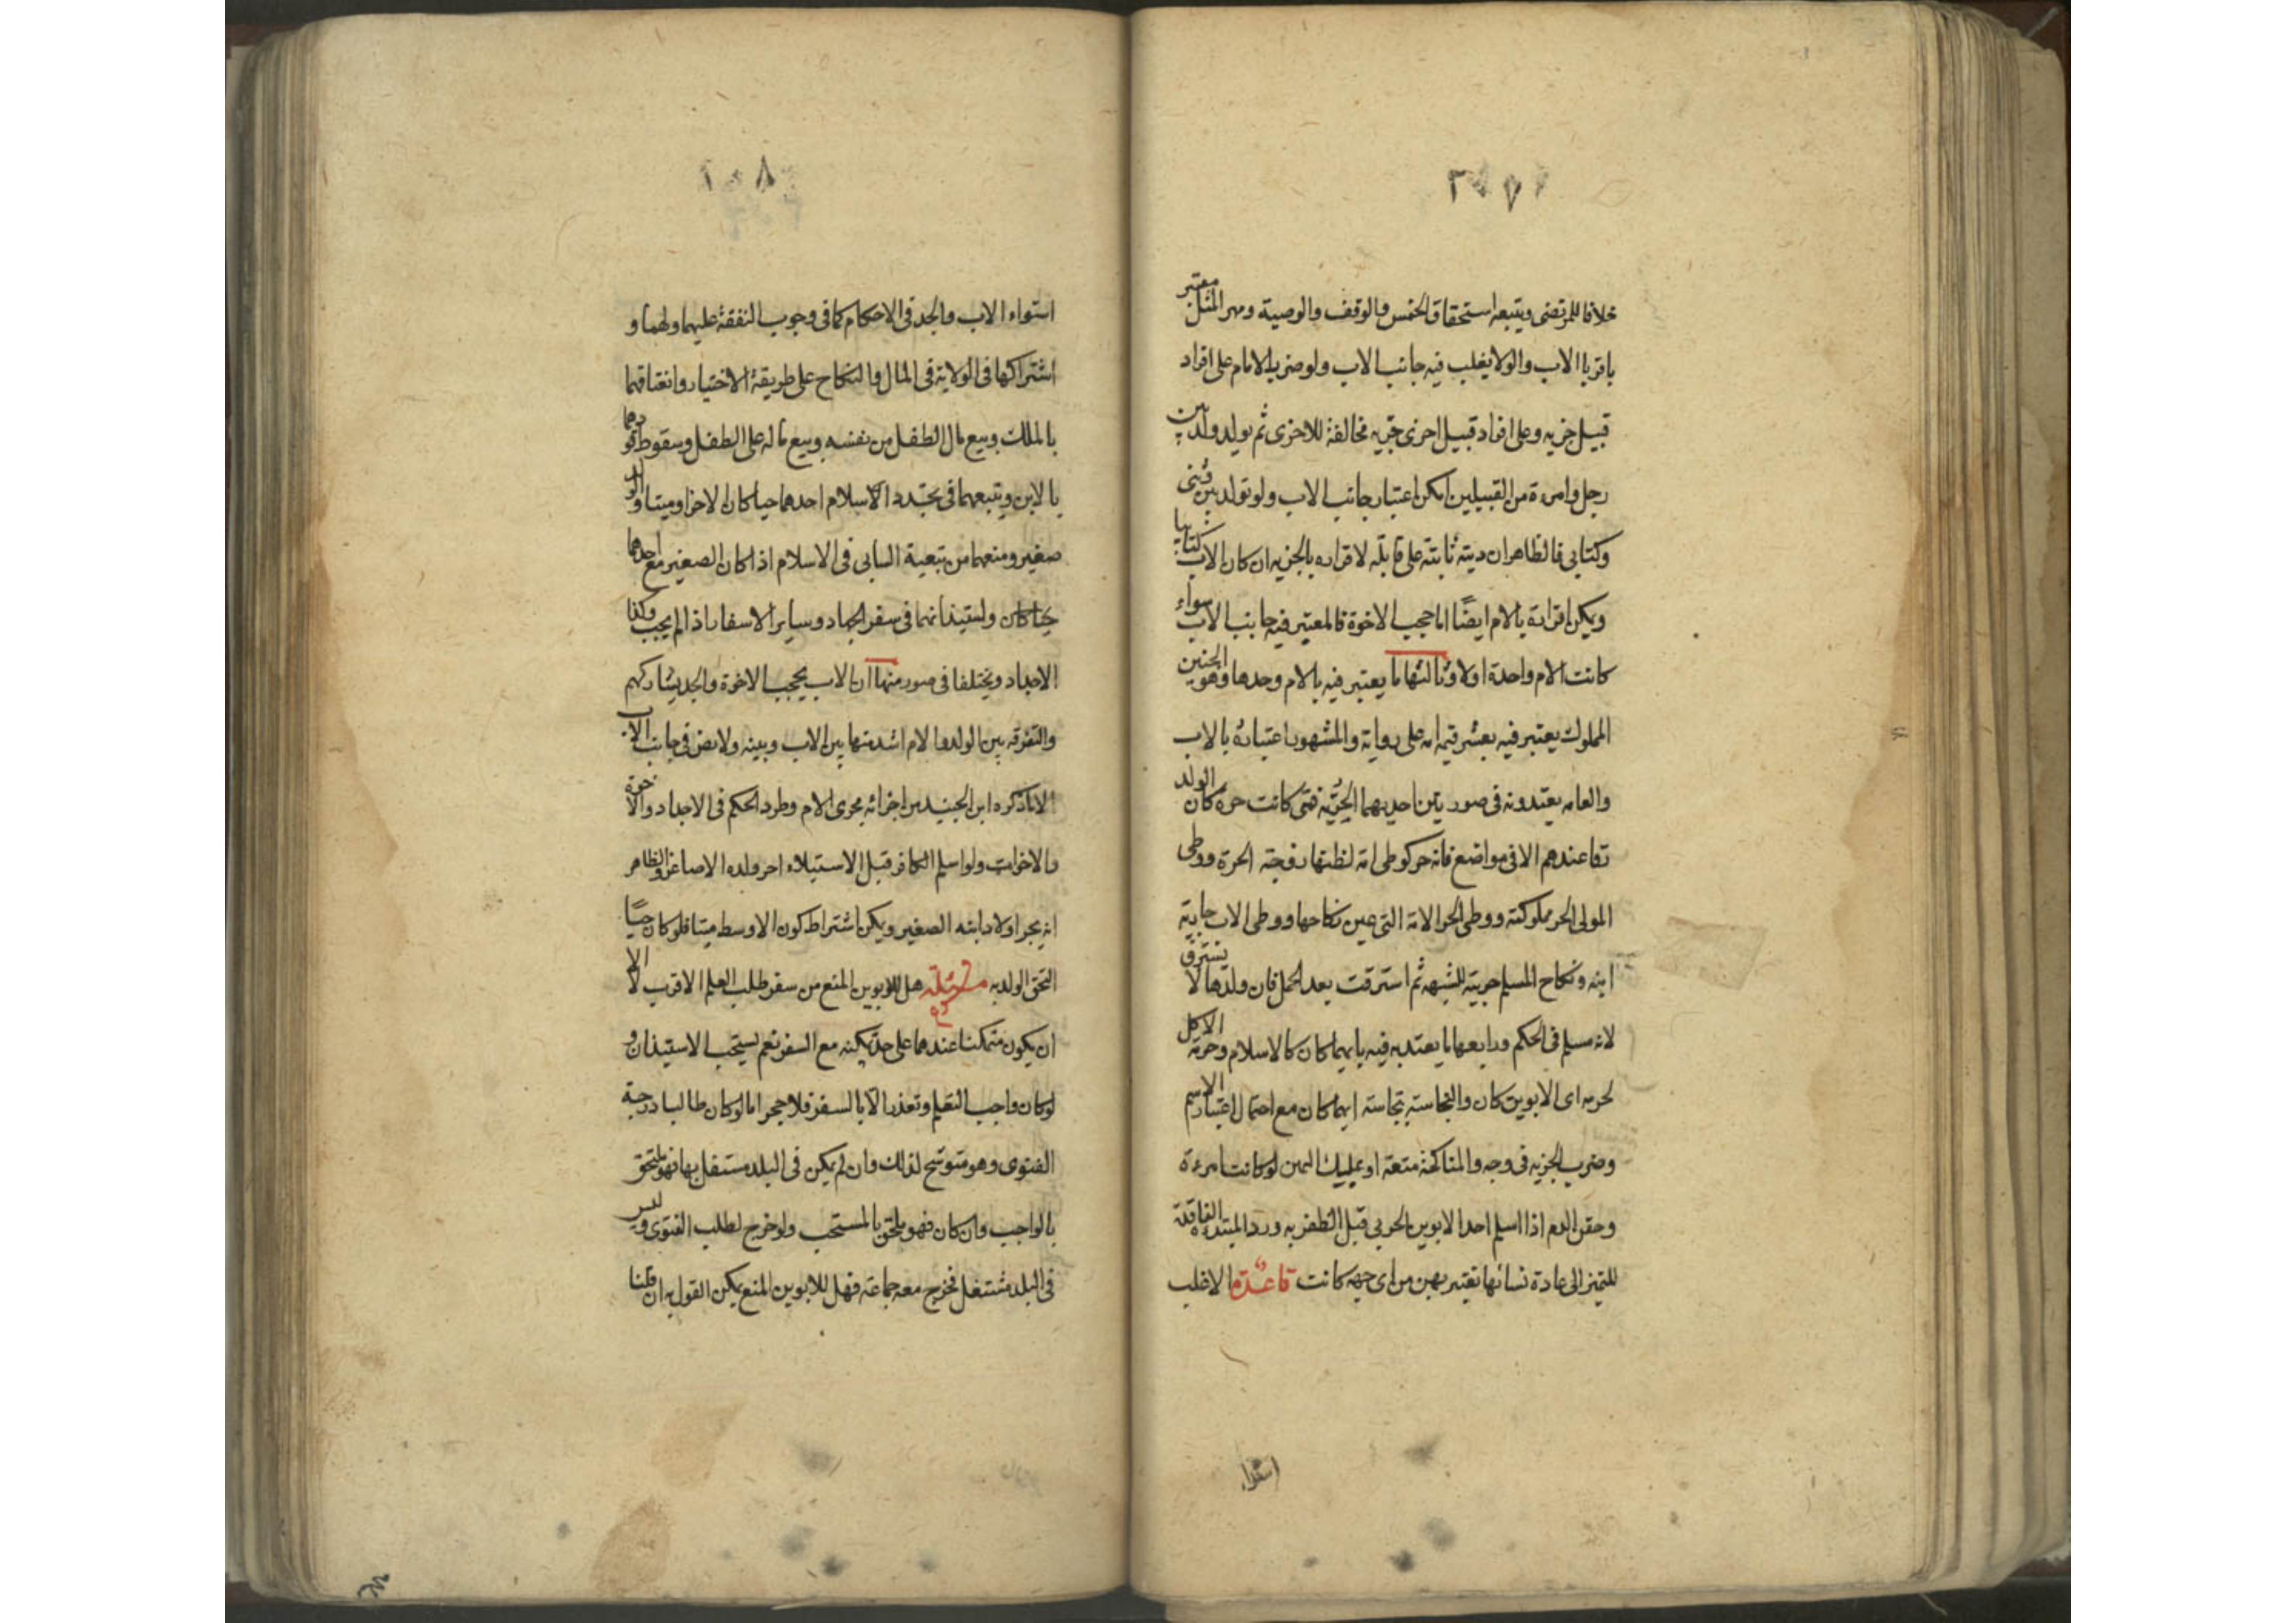 خلافا للمرتضى ويتبعه استحقاق الخمس والوقف والوصية ومهر المثل معتبر
باقربا الاب والولا يغلب فيه جانب الاب ولو ضرب الامام على افراد
قبيل جزيه وعلى افراد قبيل اخرى جزيه مخالفة للاخرى ثم يولد ولد بين
رجل وامرءة من القبيلين امكن اعتبار جانب الاب ولو تولد بين وثنى
وكتابى فالظاهر ان ديته ثابتة على لاقراره بالجزيه ان كان الاب كتابيا
ويمكن اقراره بالام ايضا اما حجب الاخوة فالمعتبر فيه جانب الاب سواء
كانت الام واحدة او لا وثالثها ما يعتبر فيه بالام وحدها وهو الجنين
المملوك يعتبر فيه بعشر قيمة امه على رواية والمشهور اعتباره بالاب
والعامه يعتدونه فى صورتين احديهما الحرية فمتى كانت حرة كان الولد
عندهم الا فى مواضع فانه حر كوطى امة لظنها زوجته الحرة ووطى
المولى الحر مملوكته ووطى الحر الامة التى نكاحها ووطى الاب جارية
ابنه ونكاح المسلم حربية للشبهه ثم استرقت بعد الحمل فان ولدها لا يسترق
لانه مسلم فى الحكم ورابعها ما يعتد به فيه بايهما كان كالاسلام وحرمة الاكل
لحرمه اى الابوين كان والنجاسة بنجاسة ايهما كان مع احتمال اعتبار الاسم
وضرب الجزيه فى وجه والمناكحة متعة او بمليك اليمن لو كانت امرءة
وحقن الدم اذا اسلم احد الابوين الحربى قبل الظفر به ورد المبتدءة الفاقدة
للتميز الى عادة نسائها تعتبر بهن من اى جهه كانت قاعدة الاغلب
استواء
استواء الاب والجد فى الاحكام كما فى وجوب النفقة عليهما ولهما و
اشتراكهما فى الولاية فى المال والنكاح على طريقة الاختيار وانعتاقهما
بالملك وبيع مال الطفل من نفسه وبيع ماله على الطفل وسقوط قودهما
بالابن ويتبعهما فى تجدد الاسلام احدهما حيا كان الاخر او ميتا والولد
صغير ومنعهما من تبعية السابى فى الاسلام اذا كان الصغير مع احدهما
ولستيذانهما فى سفر الجهاد وساير الاسفار اذا لم يجب وكذا
الاجداد ويختلفا فى صور منها ان الاب يحجب الاخوة والجد يشاركهم
والتفرقه بين الولد والام اشد منها بين الاب وبينه ولا نص فى جانب الاب
الا ما ذكره ابن الجنيد من اجرائه مجرى الام وطرد الحكم فى الاجداد والاخوة
والاخوات ولو اسلم الكافر قبل الاستيلاء احر ولده الاصاغر والظاهر
انه يحر اولاد ابنه الصغير ويمكن اشتراط كون الاوسط ميتا فلو كان حيا
التحق الولد به مسئلة هل للابوين المنع من سفر طلب العلم الاقرب لا الا
ان يكون متمكنا عندهما على حد يمكنه مع السفر نعم يستحب الاستيذان و
لو كان واجب التعلم وتعذر الا بالسفر فلا حجر اما لو كان طالبا درجة
الفتوى وهو متوشح لذلك وان لم يكن فى البلد مستقل بها فهو ملتحق
بالواجب وان كان فهو ملحق بالمستحب ولو خرج لطلب الفتوى وليس
فى البلد مشتغل فخرج معه جماعة فهل للابوين المنع يمكن القول به ان قلنا